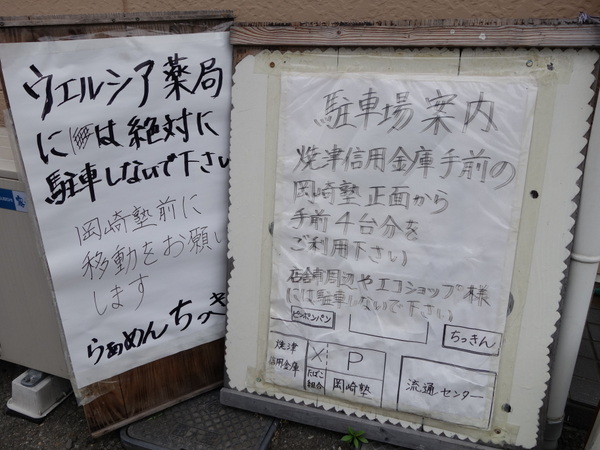 ウエルシア薬局
には絶対に
駐車しないで下さい
岡崎塾前に
移動をお願い
します
らぁめんちっき
駐車場案内
焼津信用金庫手前の
岡崎塾正面から
手前4台分を
ご利用下さい
店舗周辺やエコショップ様
には駐車しないで下さい
ピンポンパン
ちっきん
焼津
信用金庫
X
P
たばこ
組合
岡崎塾
流通センター